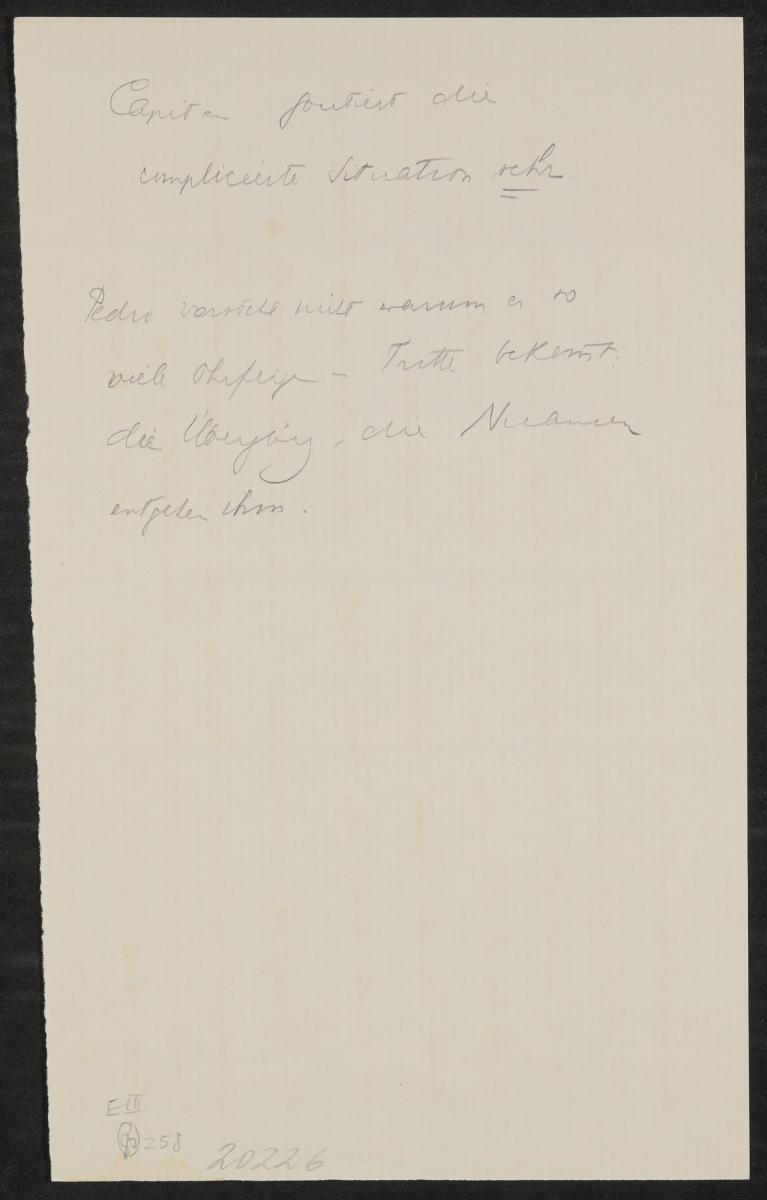 Capitan goutiert die
complicierte Situation sehr.
Pedro versteht nicht warum er so
viele Ohrfeigen – Tritte bekommt.
die Übergänge, die Nuancen
entgehen ihm.
E III
258
20226